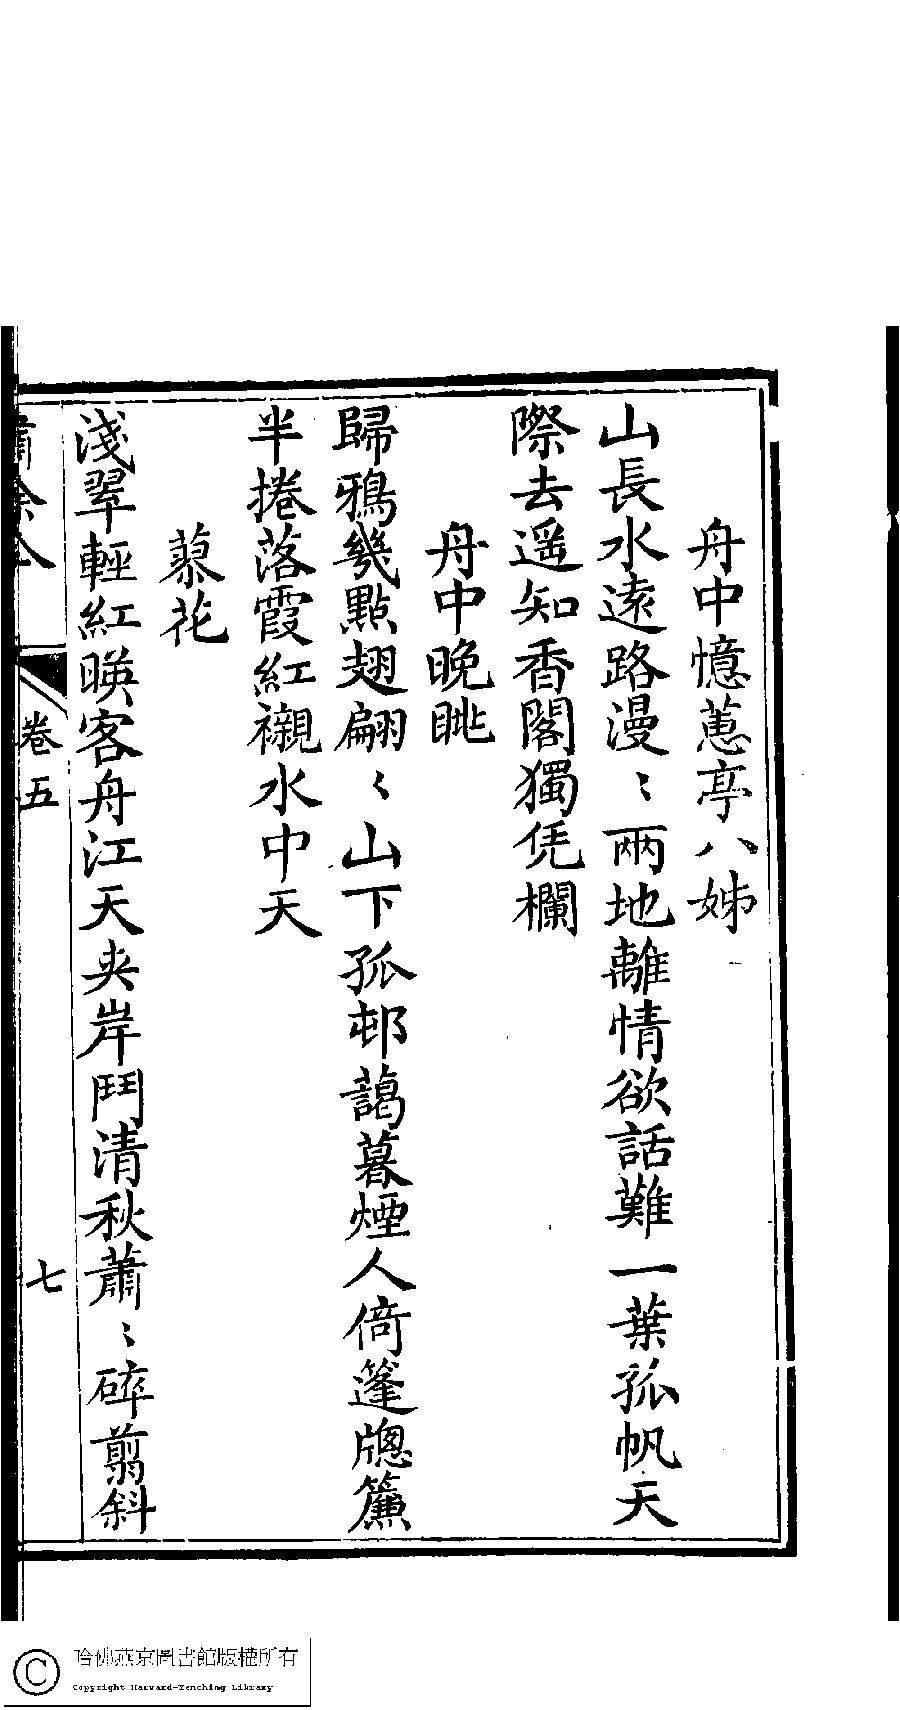 舟中憶蕙亭八姊
山長水遠路漫〻兩地離情欲話難一葉孤帆天
際去遥知香閣獨凭欄
舟中晚眺
歸鴉幾點翅翩〻山下孤邨藹暮煙人倚篷牕簾
半捲落霞紅襯水中天
蓼花
淺翠輕紅暎客舟江天夹岸鬥清秋蕭〻碎剪斜
卷五
七
哈佛燕京圖書館版權所有
Copyright Harvard-Yenching Library